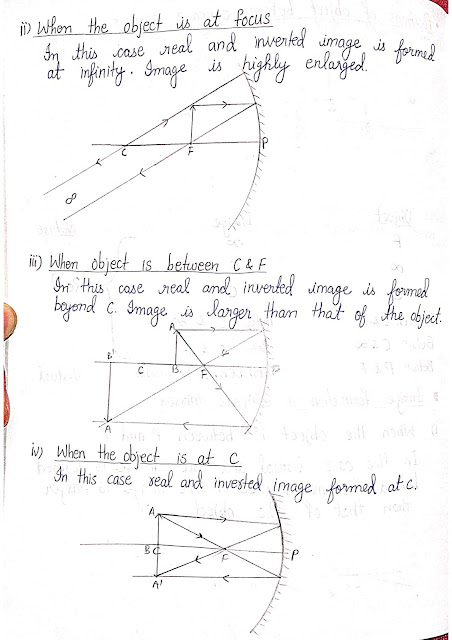 ii) When the object is at focus
In this case real and inverted image is formed
at infinity. Image is highly enlarged.
C F P
∞
iii) When object is between C & F
In this case real and inverted image is formed
beyond C. Image is larger than that of the object.
A
B' C B F P
A
iv) When the object is at C
In this case real and invested image formed at C.
A
B C F P
A'